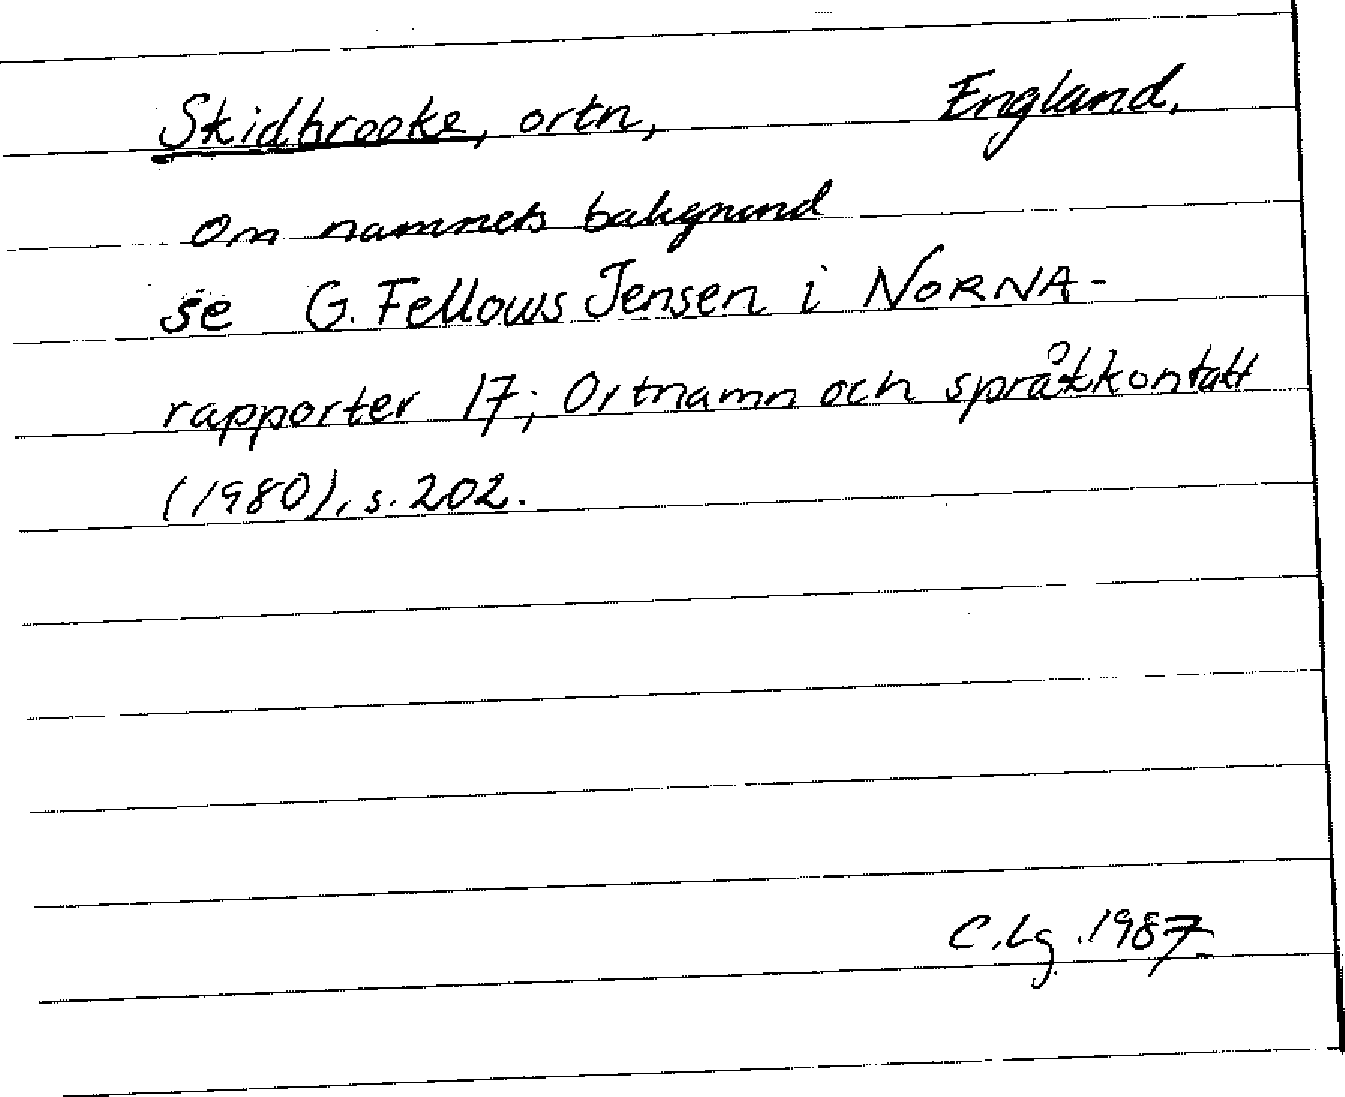 Skidbrooke, ortn, England.
Om namnets bakgrund
se G. Fellows Jensen i NORNA-
rapporter 17; Ortnamn och språkkontakt
(1980), s. 202.
C. Lg. 1987